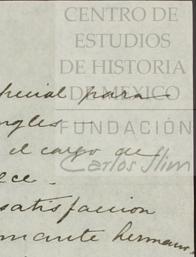 CENTRO DE
ESTUDIOS
DE HISTORIA
DE MEXICO
FUNDACIÓN
Carlos Slim
pecial para
ngles
el cargo de
ece.
satisfaccion
mante hermano